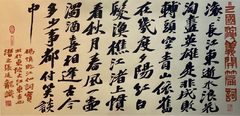 三國演義開篇詞
滾〻長江東逝水浪花
淘盡英雄是非成敗
轉頭空青山依舊
在幾度夕陽紅白
髮漁樵江渚上慣
看秋月春風一壺
濁酒喜相逢古今
多少事都付笑談
中